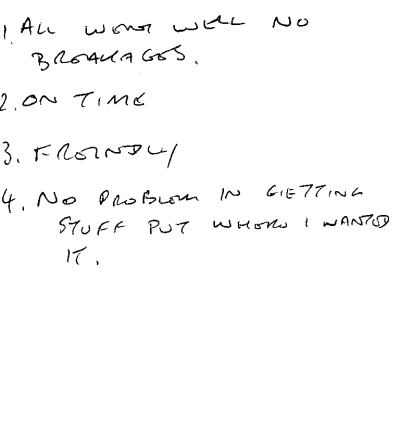 1. ALL WENT WELL NO
BREAKAGES.
2. ON TIME
3. FRIENDLY
4. NO PROBLEM IN GETTING
STUFF PUT WHERE I WANTED
IT.